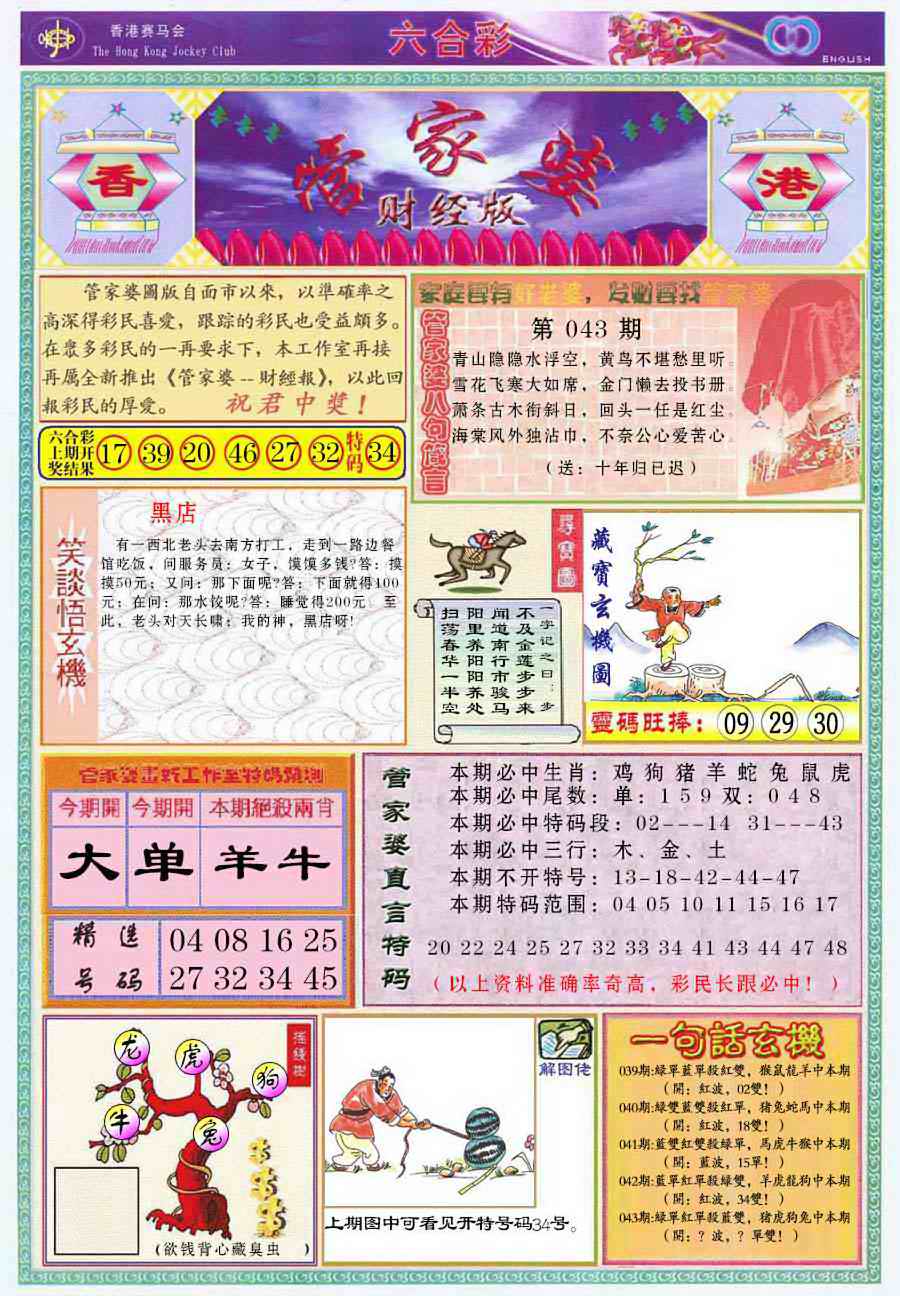 香港赛马会
The Hong Kong Jockey Club
六合彩
ENGLISH
香
管家婆
财经版
港
管家婆圖版自面市以來，以準確率之
高深得彩民喜愛，跟踪的彩民也受益頗多。
在眾多彩民的一再要求下，本工作室再接
再厲全新推出《管家婆--財經報》，以此回
報彩民的厚愛。 祝君中獎！
六合彩
上期开
奖结果
17 39 20 46 27 32 特码 34
家庭要有好老婆，发财要找管家婆
管家婆八句箴言
第 043 期
青山隐隐水浮空，黄鸟不堪愁里听。
雪花飞寒大如席，金门懒去投书册。
萧条古木衔斜日，回头一任是红尘。
海棠风外独沾巾，不奈公心爱苦心。
（送：十年归已迟）
笑談悟玄機
黑店
有一西北老头去南方打工，走到一路边餐
馆吃饭，问服务员：女子，馍馍多钱?答：摸
摸50元；又问：那下面呢?答：下面就得100
元；在问：那水饺呢?答：睡觉得200元 至
此，老头对天长啸：我的神，黑店呀!
尋寶圖
一字记之曰：步
不及金莲步步来
闻道南行市骏马
阳里养阳阳养处
扫荡春华一半空
藏寶玄機圖
靈碼旺捧： 09 29 30
管家婆畫新工作室特碼預測
今期開 今期開 本期絕殺兩肖
大 单 羊牛
精选号码
04 08 16 25
27 32 34 45
管家婆直言特码
本期必中生肖：鸡 狗 猪 羊 蛇 兔 鼠 虎
本期必中尾数：单：1 5 9 双：0 4 8
本期必中特码段：02---14 31---43
本期必中三行：木、金、土
本期不开特号：13-18-42-44-47
本期特码范围：04 05 10 11 15 16 17
20 22 24 25 27 32 33 34 41 43 44 47 48
（以上资料准确率奇高，彩民长跟必中！）
摇錢樹
龙
虎
狗
牛
兔
(欲钱背心藏臭虫 )
解图佬
上期图中可看见开特号码34号。
一句話玄機
039期:綠單藍單殺紅雙，猴鼠龍羊中本期
（開：紅波，02雙！）
040期:綠雙藍雙殺紅單，猪兔蛇馬中本期
（開：紅波，18雙！）
041期:藍雙紅雙殺綠單，馬虎牛猴中本期
（開：藍波，15單！）
042期:藍單紅單殺綠雙，羊虎龍狗中本期
（開：紅波，34雙！）
043期:綠單紅單殺藍雙，猪虎狗兔中本期
（開：? 波，? 單雙！）